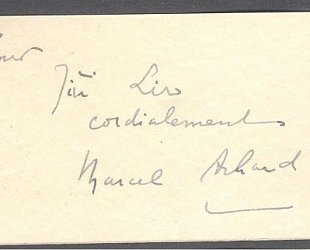 Pour
Jiří Lirs
cordialement
Marcel Achard